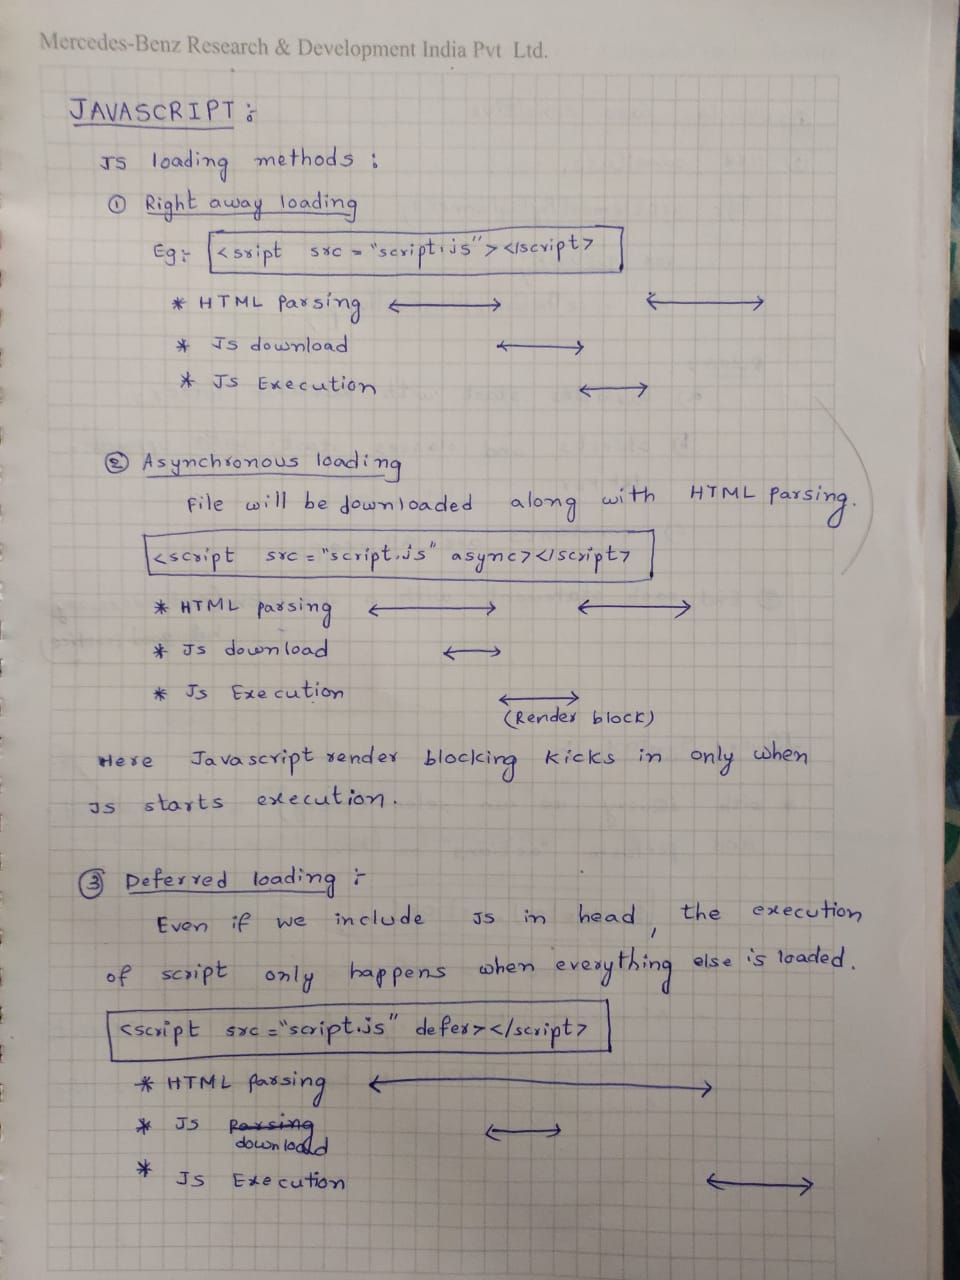 Mercedes-Benz Research & Development India Pvt Ltd.
JAVASCRIPT :-
JS loading methods :
① Right away loading
Eg:- <sript src = "script.js"></script>
* HTML Parsing
* Js download
* JS Execution
② Asynchronous loading
File will be downloaded along with HTML Parsing.
<script src = "script.js" async></script>
* HTML parsing
* Js download
* Js Execution
(Render block)
Here Javascript render blocking kicks in only when
JS starts execution.
③ Deferred loading :-
Even if we include JS in head, the execution
of script only happens when everything else is loaded.
<script src ="script.js" defer></script>
* HTML Parsing
* JS Parsing
download
* JS Execution